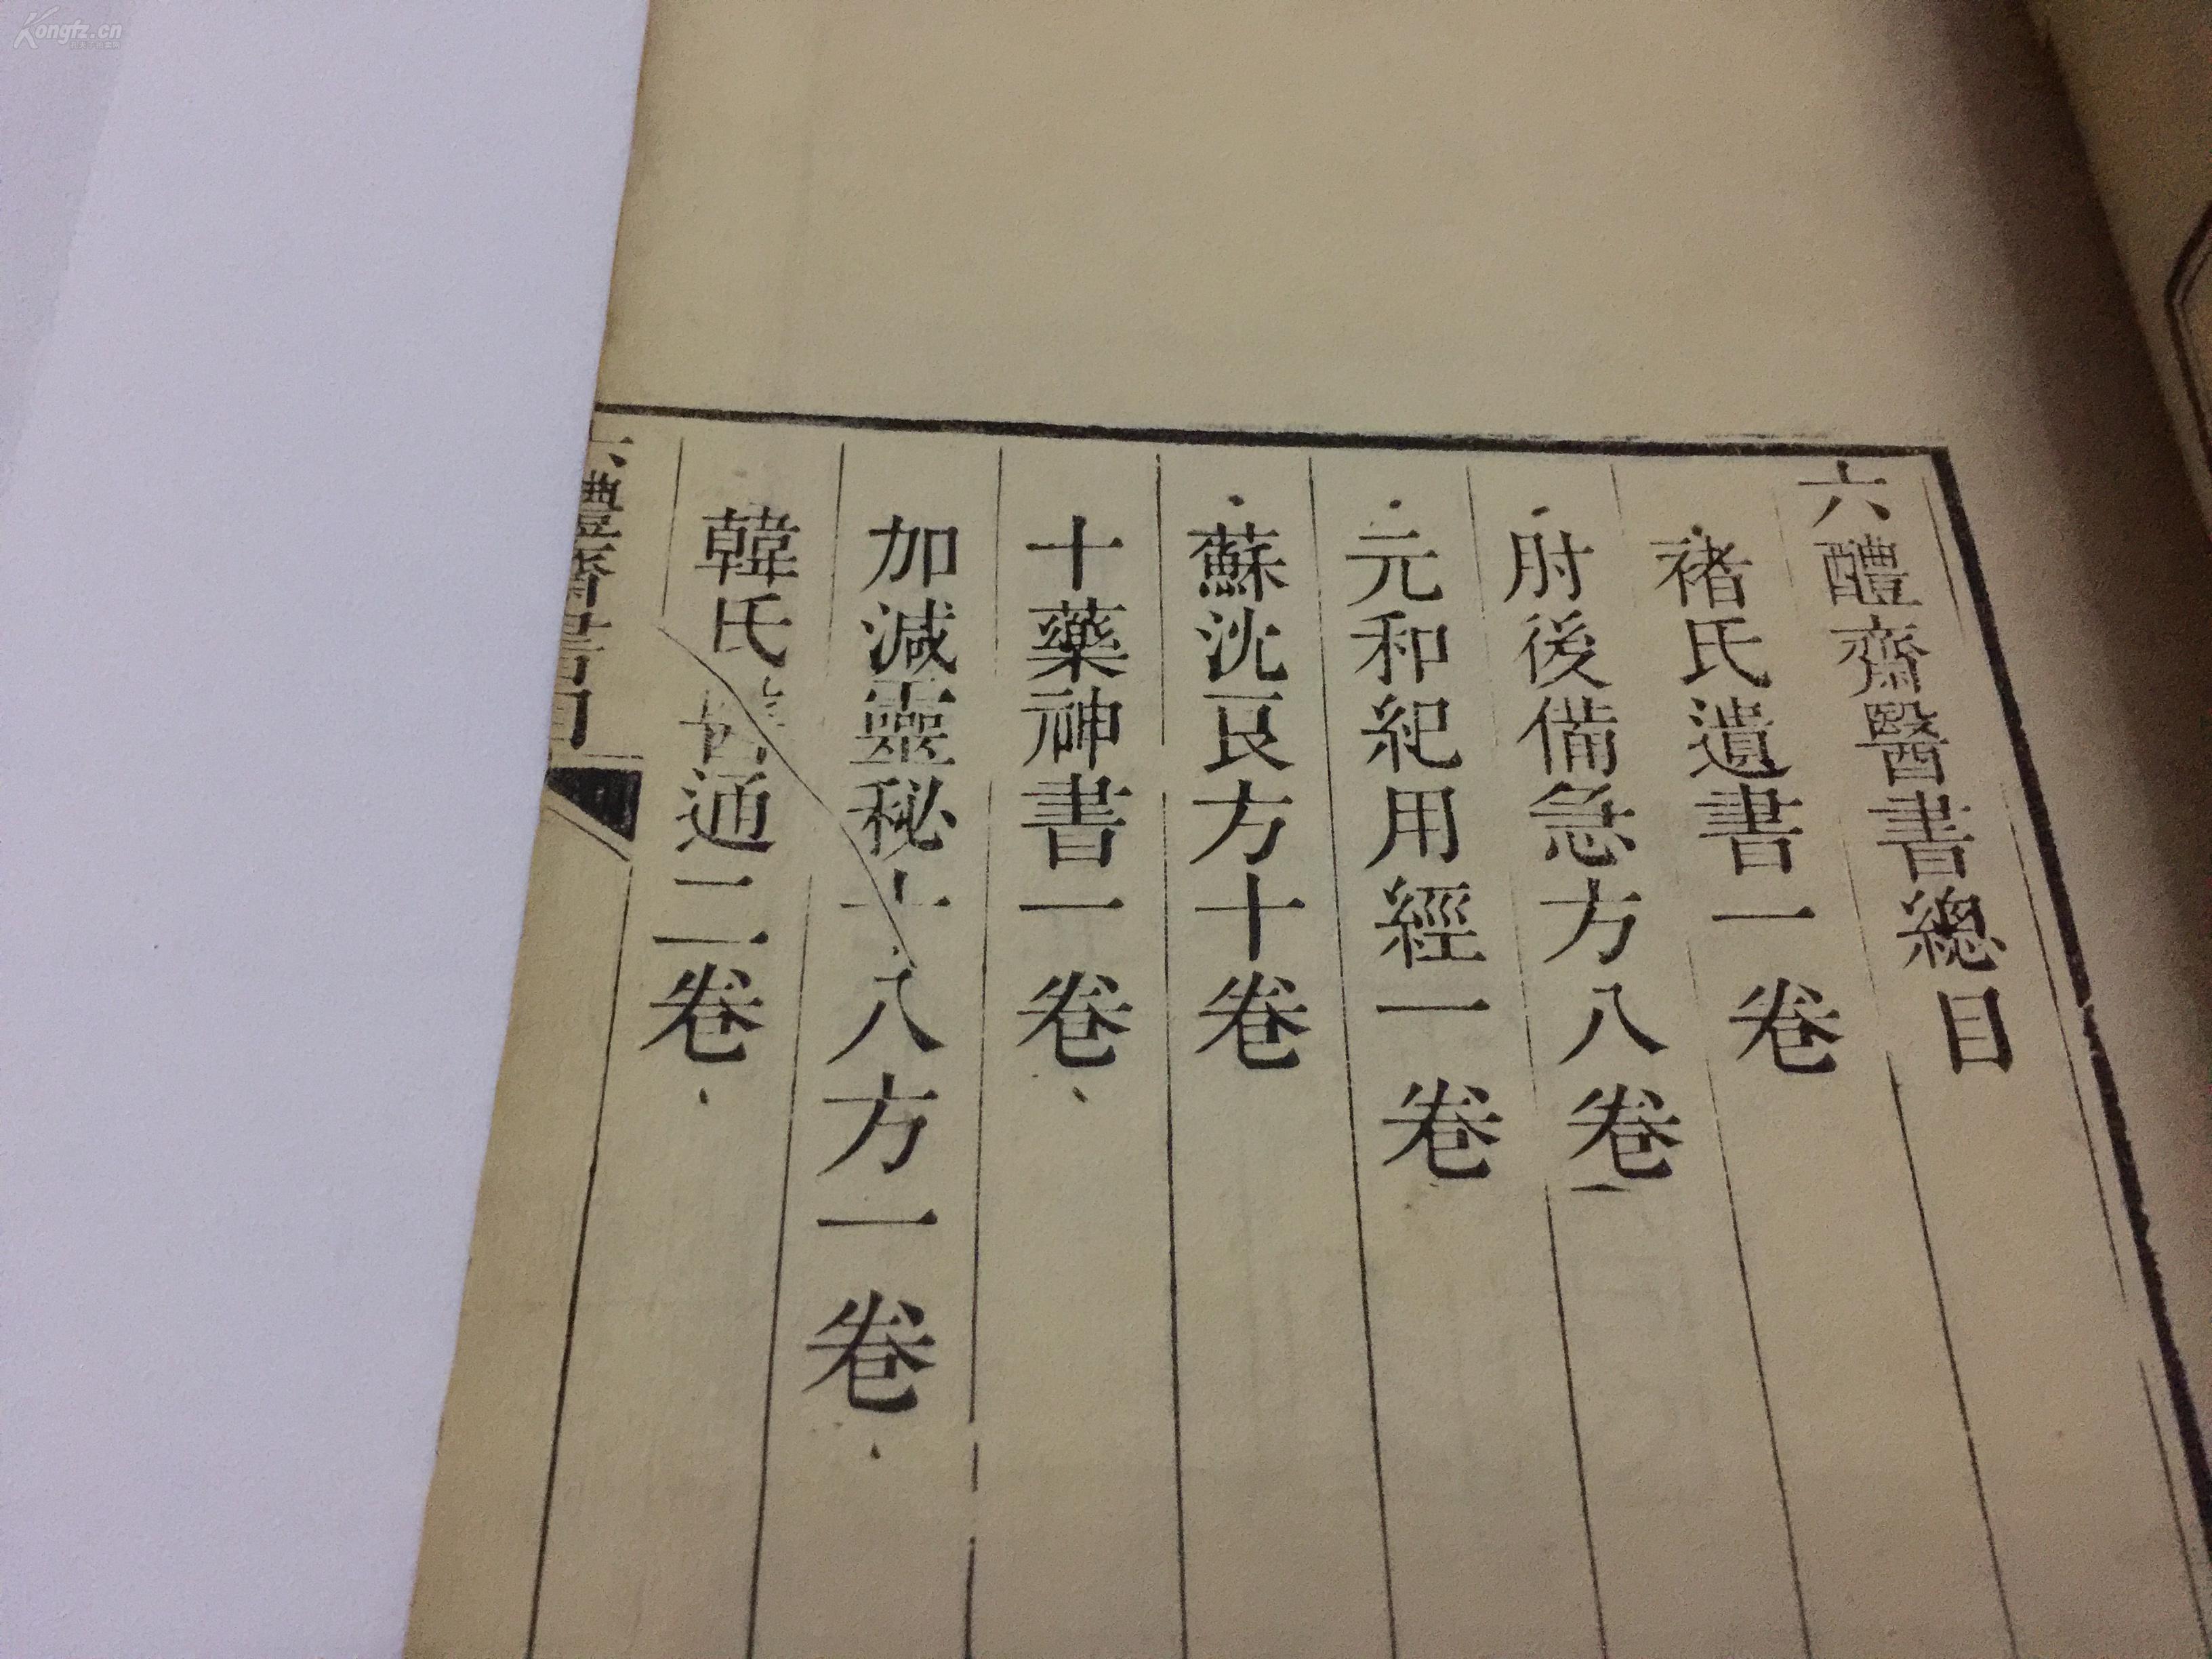 六醴齋醫書總目
褚氏遺書一卷
肘後備急方八卷
元和紀用經一卷
蘇沈良方十卷
十藥神書一卷
加減靈秘十八方一卷
韓氏醫通二卷
六醴齋書目
Kongfz.cn